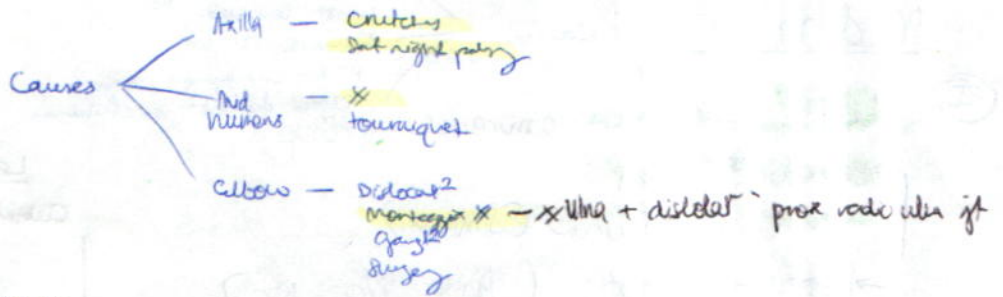 Axilla — Crutches
Sat night palsy
Causes
Mid humerus — #
tourniquet
Elbow — Dislocat²
Monteggia # — # Ulna + dislocat² prox radio ulna jt
Surgery